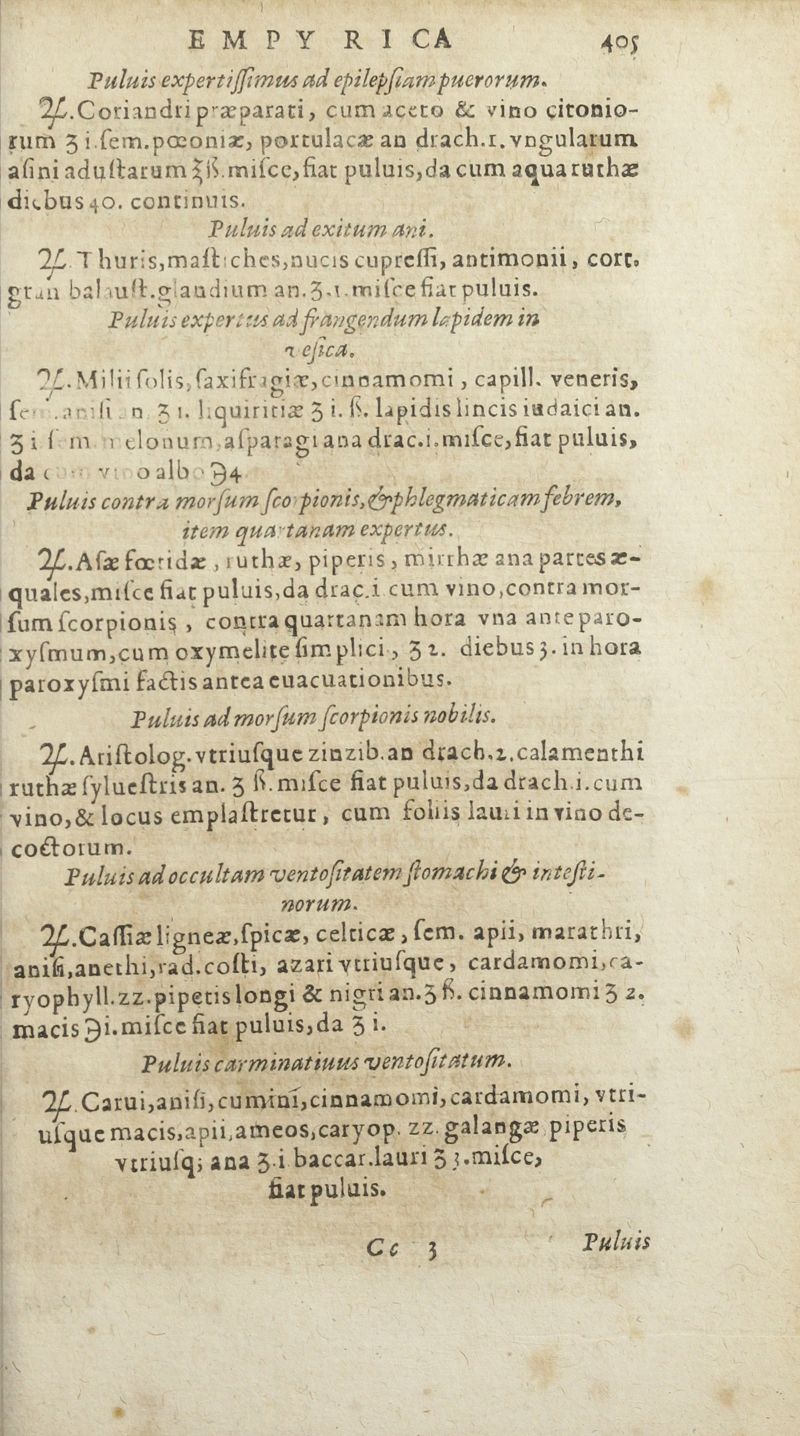 EMPYRICA 405
Puluis expertiſſimus ad epilepſiam puerorum.
℞.Coriandri præparati, cum aceto & vino citonio-
rum ʒ i.ſem.pœoniæ, portulacæ an drach.1.vngularum
aſini aduſtarum ℥ß.miſce,fiat puluis,da cum aqua ruthæ
diebus 40. continuis.
Puluis ad exitum ani.
℞.Thuris,maſtiches,nucis cupreſſi, antimonii, cort.
gran balauſt.glandium an.ʒ.1.miſce fiat puluis.
Puluis expertus ad frangendum lapidem in
veſica.
℞.Milii ſolis,ſaxifragiæ,cinnamomi, capill. veneris,
ʒ 1. liquiritiæ ʒ i. ß. lapidis lincis iudaici an.
ʒ i ſem melonum,aſparagi ana drac.i.miſce,fiat puluis,
da cum vino albo ℈4
Puluis contra morſum ſcorpionis,& phlegmaticam febrem,
item quartanam expertus.
℞.Aſæ fœtidæ, ruthæ, piperis, mirrhæ ana partes æ-
quales,miſce fiat puluis,da drac.i cum vino,contra mor-
ſum ſcorpionis, contra quartanam hora vna ante paro-
xyſmum,cum oxymelite ſimplici, ʒ 2. diebus 3. in hora
paroxyſmi factis antea euacuationibus.
Puluis ad morſum ſcorpionis nobilis.
℞.Ariſtolog.vtriuſque zinzib.an drach.2.calamenthi
ruthæ ſylueſtris an. ʒ ß.miſce fiat puluis,da drach.i.cum
vino,& locus emplaſtretur, cum foliis lauri in vino de-
coctorum.
Puluis ad occultam ventoſitatem ſtomachi & inteſti-
norum.
℞.Caſſiæ ligneæ,ſpicæ, celticæ, ſem. apii, marathri,
aniſi,anethi,rad.coſti, azari vtriuſque, cardamomi,ca-
ryophyll.zz.piperis longi & nigri an.ʒ ß. cinnamomi ʒ 2.
macis ℈i.miſce fiat puluis,da ʒ i.
Puluis carminatiuus ventoſitatum.
℞.Carui,aniſi,cumini,cinnamomi,cardamomi, vtri-
uſque macis,apii,ameos,caryop. zz. galangæ piperis
vtriuſq; ana ʒ.i baccar.lauri ʒ 3.miſce,
fiat puluis.
Cc 3 Puluis